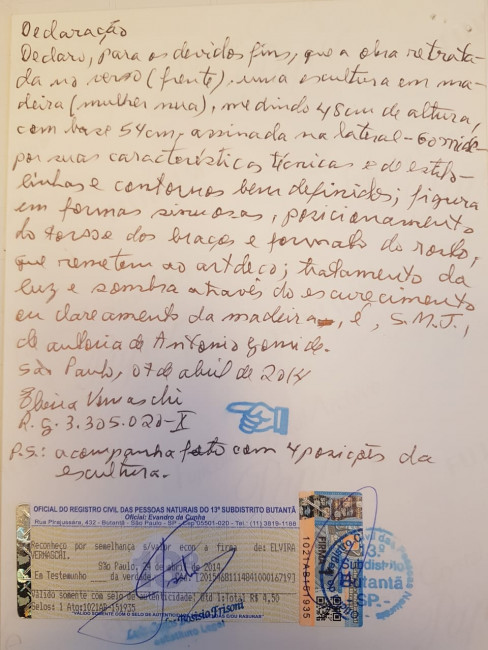 Declaração
Declaro, para os devidos fins, que a obra retrata-
da no verso (frente), uma escultura em ma-
deira (mulher nua), medindo 48cm de altura,
com base 54cm, assinada na lateral - Gomide -
por suas características técnicas e de estilo -
linhas e contornos bem definidos; figura
em formas sinuosas, posicionamento
do torso dos braços e formato do rosto,
que remetem ao art deco; tratamento da
luz e sombra através do escurecimento
ou clareamento da madeira, é, S.M.J.,
de autoria de Antonio Gomide.
São Paulo, 07 de abril de 2014
Elvira Vernaschi
R.g. 3.305.020-X
P.S.: acompanha foto com 4 posições da
escultura.
OFICIAL DO REGISTRO CIVIL DAS PESSOAS NATURAIS DO 13º SUBDISTRITO BUTANTÃ
Oficial: Evandro da Cunha
Rua Pirajussara, 432 - Butantã - São Paulo - SP - Cep 05501-020 - Tel.: (11) 3919-1188
Reconheço por semelhança s/valor econ a firma de: ELVIRA
VERNASCHI.
São Paulo, 29 de abril de 2014.
Em Testemunho da verdade.
Válido somente com selo de autenticidade! Qtd 1:Total R$ 4,50
Selos: 1 Ato:1021AB-151935
1021AB151935
Registro Civil das Pessoas Naturais
13º
Subdistrito
Butantã
-SP-